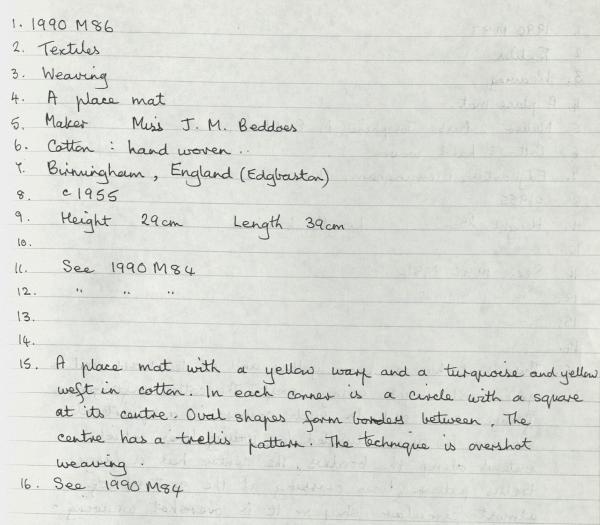 1. 1990 M86
2. Textiles
3. Weaving
4. A place mat
5. Maker Miss J. M. Beddoes
6. Cotton : hand woven ..
7. Birmingham, England (Edgbaston)
8. c 1955
9. Height 29cm Length 39cm
10.
11. See 1990 M84
12. " " "
13.
14.
15. A place mat with a yellow warp and a turquoise and yellow
weft in cotton. In each corner is a circle with a square
at its centre. Oval shapes form borders between. The
centre has a trellis pattern. The technique is overshot
weaving.
16. See 1990 M84